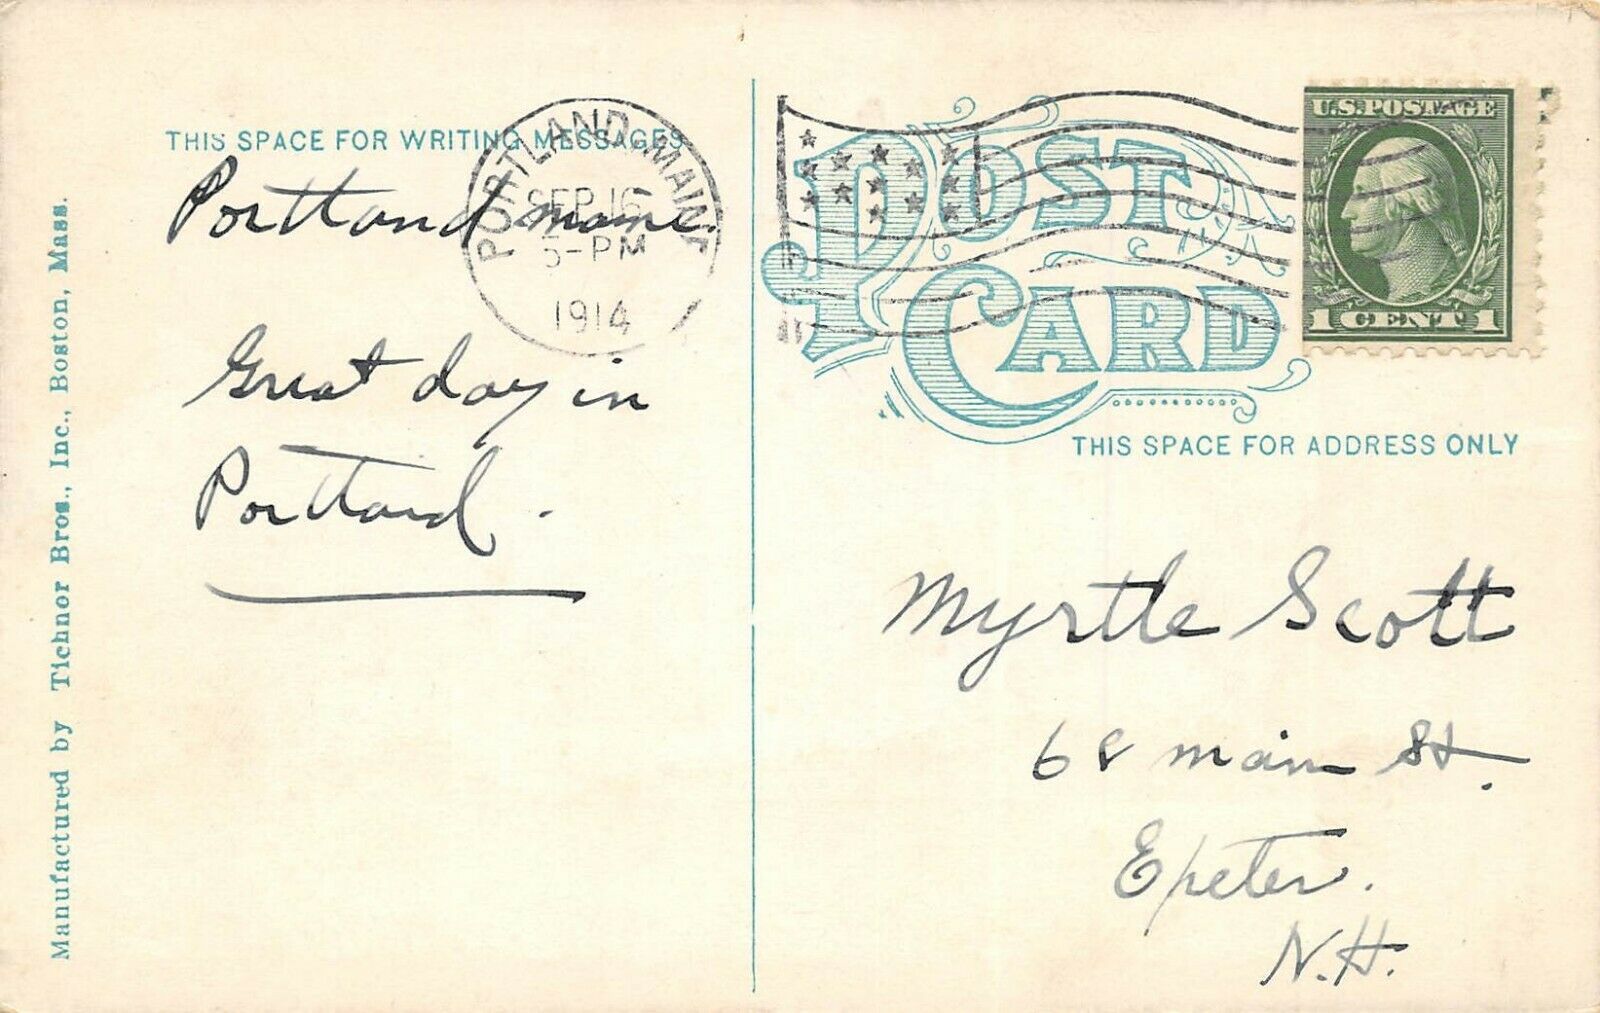 THIS SPACE FOR WRITING MESSAGES
PORTLAND, MAINE
SEP 16
5-PM
1914
Portland Maine.
Great day in
Portland.
Manufactured by Tichnor Bros., Inc., Boston, Mass.
POST
CARD
U.S. POSTAGE
1 CENT 1
THIS SPACE FOR ADDRESS ONLY
Myrtle Scott
68 Main St.
Exeter.
N.H.